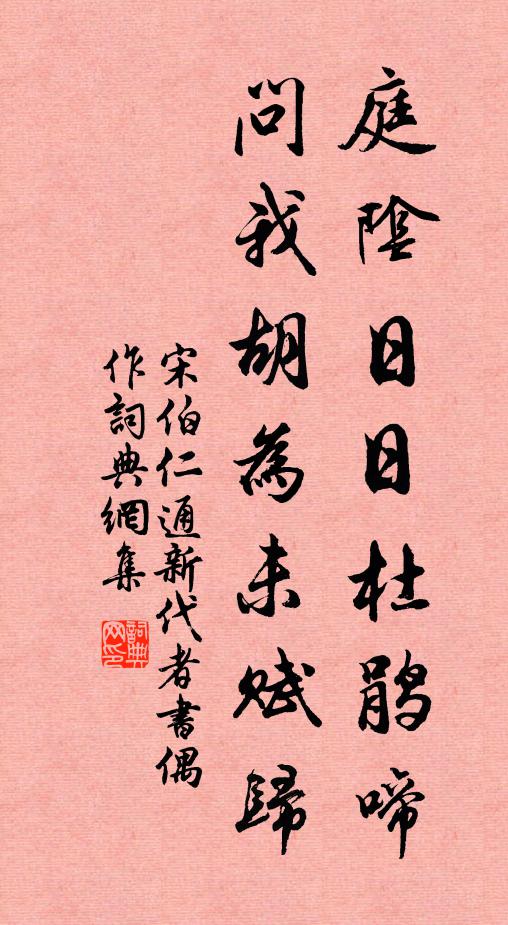 庭陰日日杜鹃啼
問我胡為未賦歸
宋伯仁通新代者書偶
作詞典網集
詞典
网印